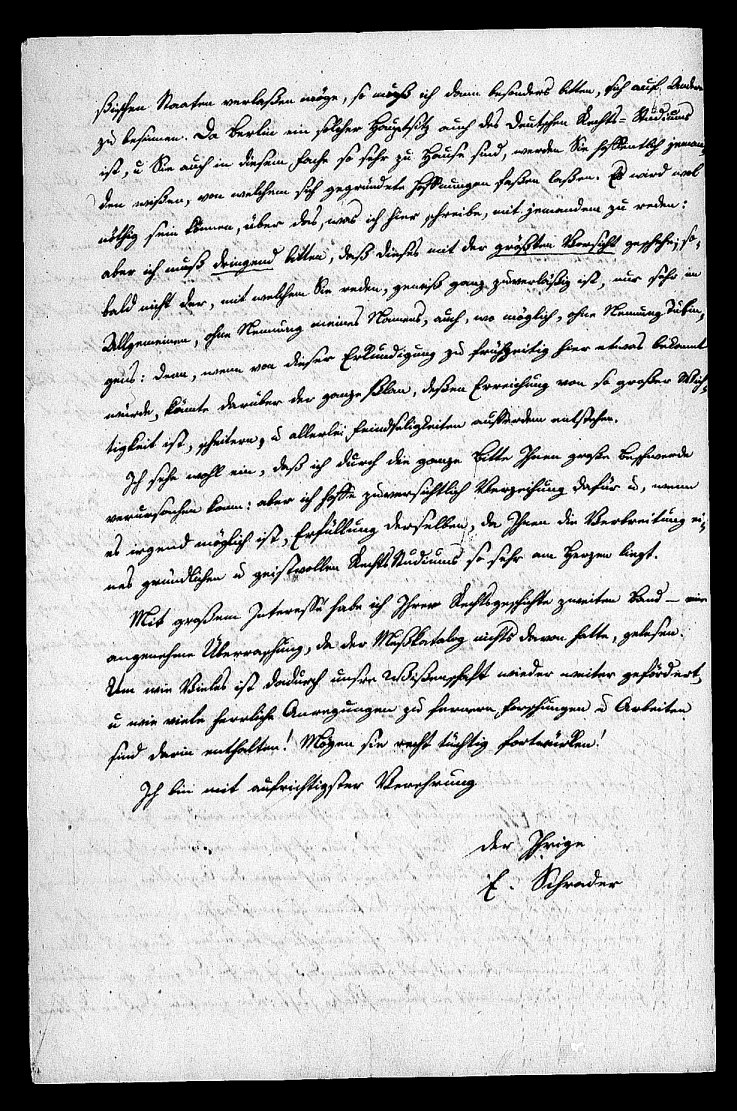 ßischen Staaten verlaßen möge, so muß ich dann besonders bitten, sich auf Andere
zu besinnen. Da Berlin ein solcher Hauptsitz auch des Deutschen Rechts-Studiums
ist, u Sie auch in diesem Fache so sehr zu Hause sind, werden Sie hoffentlich jeman-
den wißen, von welchem sich gegründete Hoffnungen faßen laßen. Es wird wol
nöthig sein können, über das, was ich hier schreibe, mit jemandem zu reden:
aber ich muß dringend bitten, daß dieses mit der größten Vorsicht geschehe, so-
bald nicht der, mit welchem Sie reden, gewiß ganz zuverläßig ist, nur sehr im
Allgemeinen, ohne Nennung meines Namens, auch, wo möglich, ohne Nennung Tübin-
gens: denn, wenn von dieser Erkundigung zu frühzeitig hier etwas bekannt
würde, könnte darüber der ganze Plan, deßen Erreichung von so großer Wich-
tigkeit ist, scheitern, u allerlei Feindseligkeiten außerdem entstehen.
Ich sehe wohl ein, daß ich durch die ganze Bitte Ihnen große Beschwerde
verursachen kann: aber ich hoffe zuversichtlich Verzeihung dafür u, wenn
es irgend möglich ist, Erfüllung derselben, da Ihnen die Verbreitung ei-
nes gründlichen u geistvollen Rechtsstudiums so sehr am Herzen liegt.
Mit großem Interesse habe ich Ihrer Rechtsgeschichte zweiten Band – eine
angenehme Überraschung, da der Meßkatalog nichts davon hatte, gelesen.
Um wie Vieles ist dadurch unsre Wißenschaft wieder weiter gefördert,
u wie viele herrliche Anregungen zu fernern Forschungen u Arbeiten
sind darin enthalten! Mögen sie recht tüchtig fortwürken!
Ich bin mit aufrichtigster Verehrung
der Ihrige
E. Schrader